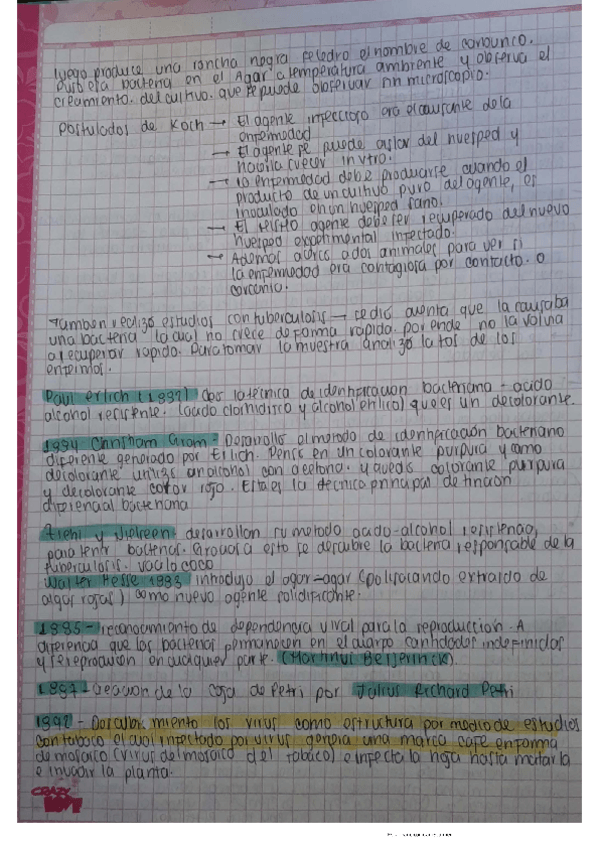 luego produce una rancha negra se le dio el nombre de carbunco.
puso esa bacteria en el Agar a temperatura ambiente y observa el
creamiento. del cultivo. que se puede observar microscopio.
Postulados de Koch → El agente infeccioso era el causante de la
enfermedad
→ El agente se puede aislar del huesped y
hacerla crecer in vitro.
→ la enfermedad debe producirse cuando el
producto de un cultivo puro del agente, es
inoculado en un huesped sano.
→ El agente debe ser recuperado del nuevo
huesped experimental infectado.
→ Ademas a dos animales para ver si
la enfermedad era contagiosa por contacto. o
También realizó estudios con tuberculosis → se dio cuenta que la causaba
una bacteria la cual no crece de forma rapida. por ende no la volvia
a recuperar rapido. Para tomar la muestra analizó la tos de los
enfermos.
Paul Erlich (1882) la técnica de identificación bacteriana - acido
alcohol resistente. (acido clorhidrico y alcohol etilico) que es un decolorante.
1884 Christham Gram - Desarrollo el metodo de identificación bacteriano
diferente generado por Erlich. Penso en un colorante purpura y como
decolorante utilizo un alcohol con acetona. y quedo colorante purpura
y decolorante color rojo. Esta es la tecnica principal de tincion
diferencial bacteriana
y desarrollan su metodo acido-alcohol resistencia,
para tenir bacterias. Gracias a esto se descubre la bacteria responsable de la
tuberculosis.
Walter Hesse 1883 introdujo el agar-agar (polisacarido extraido de
algas rojas) como nuevo agente solidificante.
1885 - reconocimiento de dependencia viral para la reproduccion. A
diferencia que las bacterias permanecen en el cuerpo cantidades indefinidas
y se reproducen en cualquier parte. (Martinus Beijerinck).
1887 - creacion de la Caja de Petri por Julius Richard Petri
1892 - Descubrimiento los virus como estructura por medio de estudios
con tabaco el cual infectado por virus genera una marca cafe en forma
de mosaico (virus del mosaico del tabaco) e infecta la hoja hasta matarla
e invadir la planta.
CRAZY